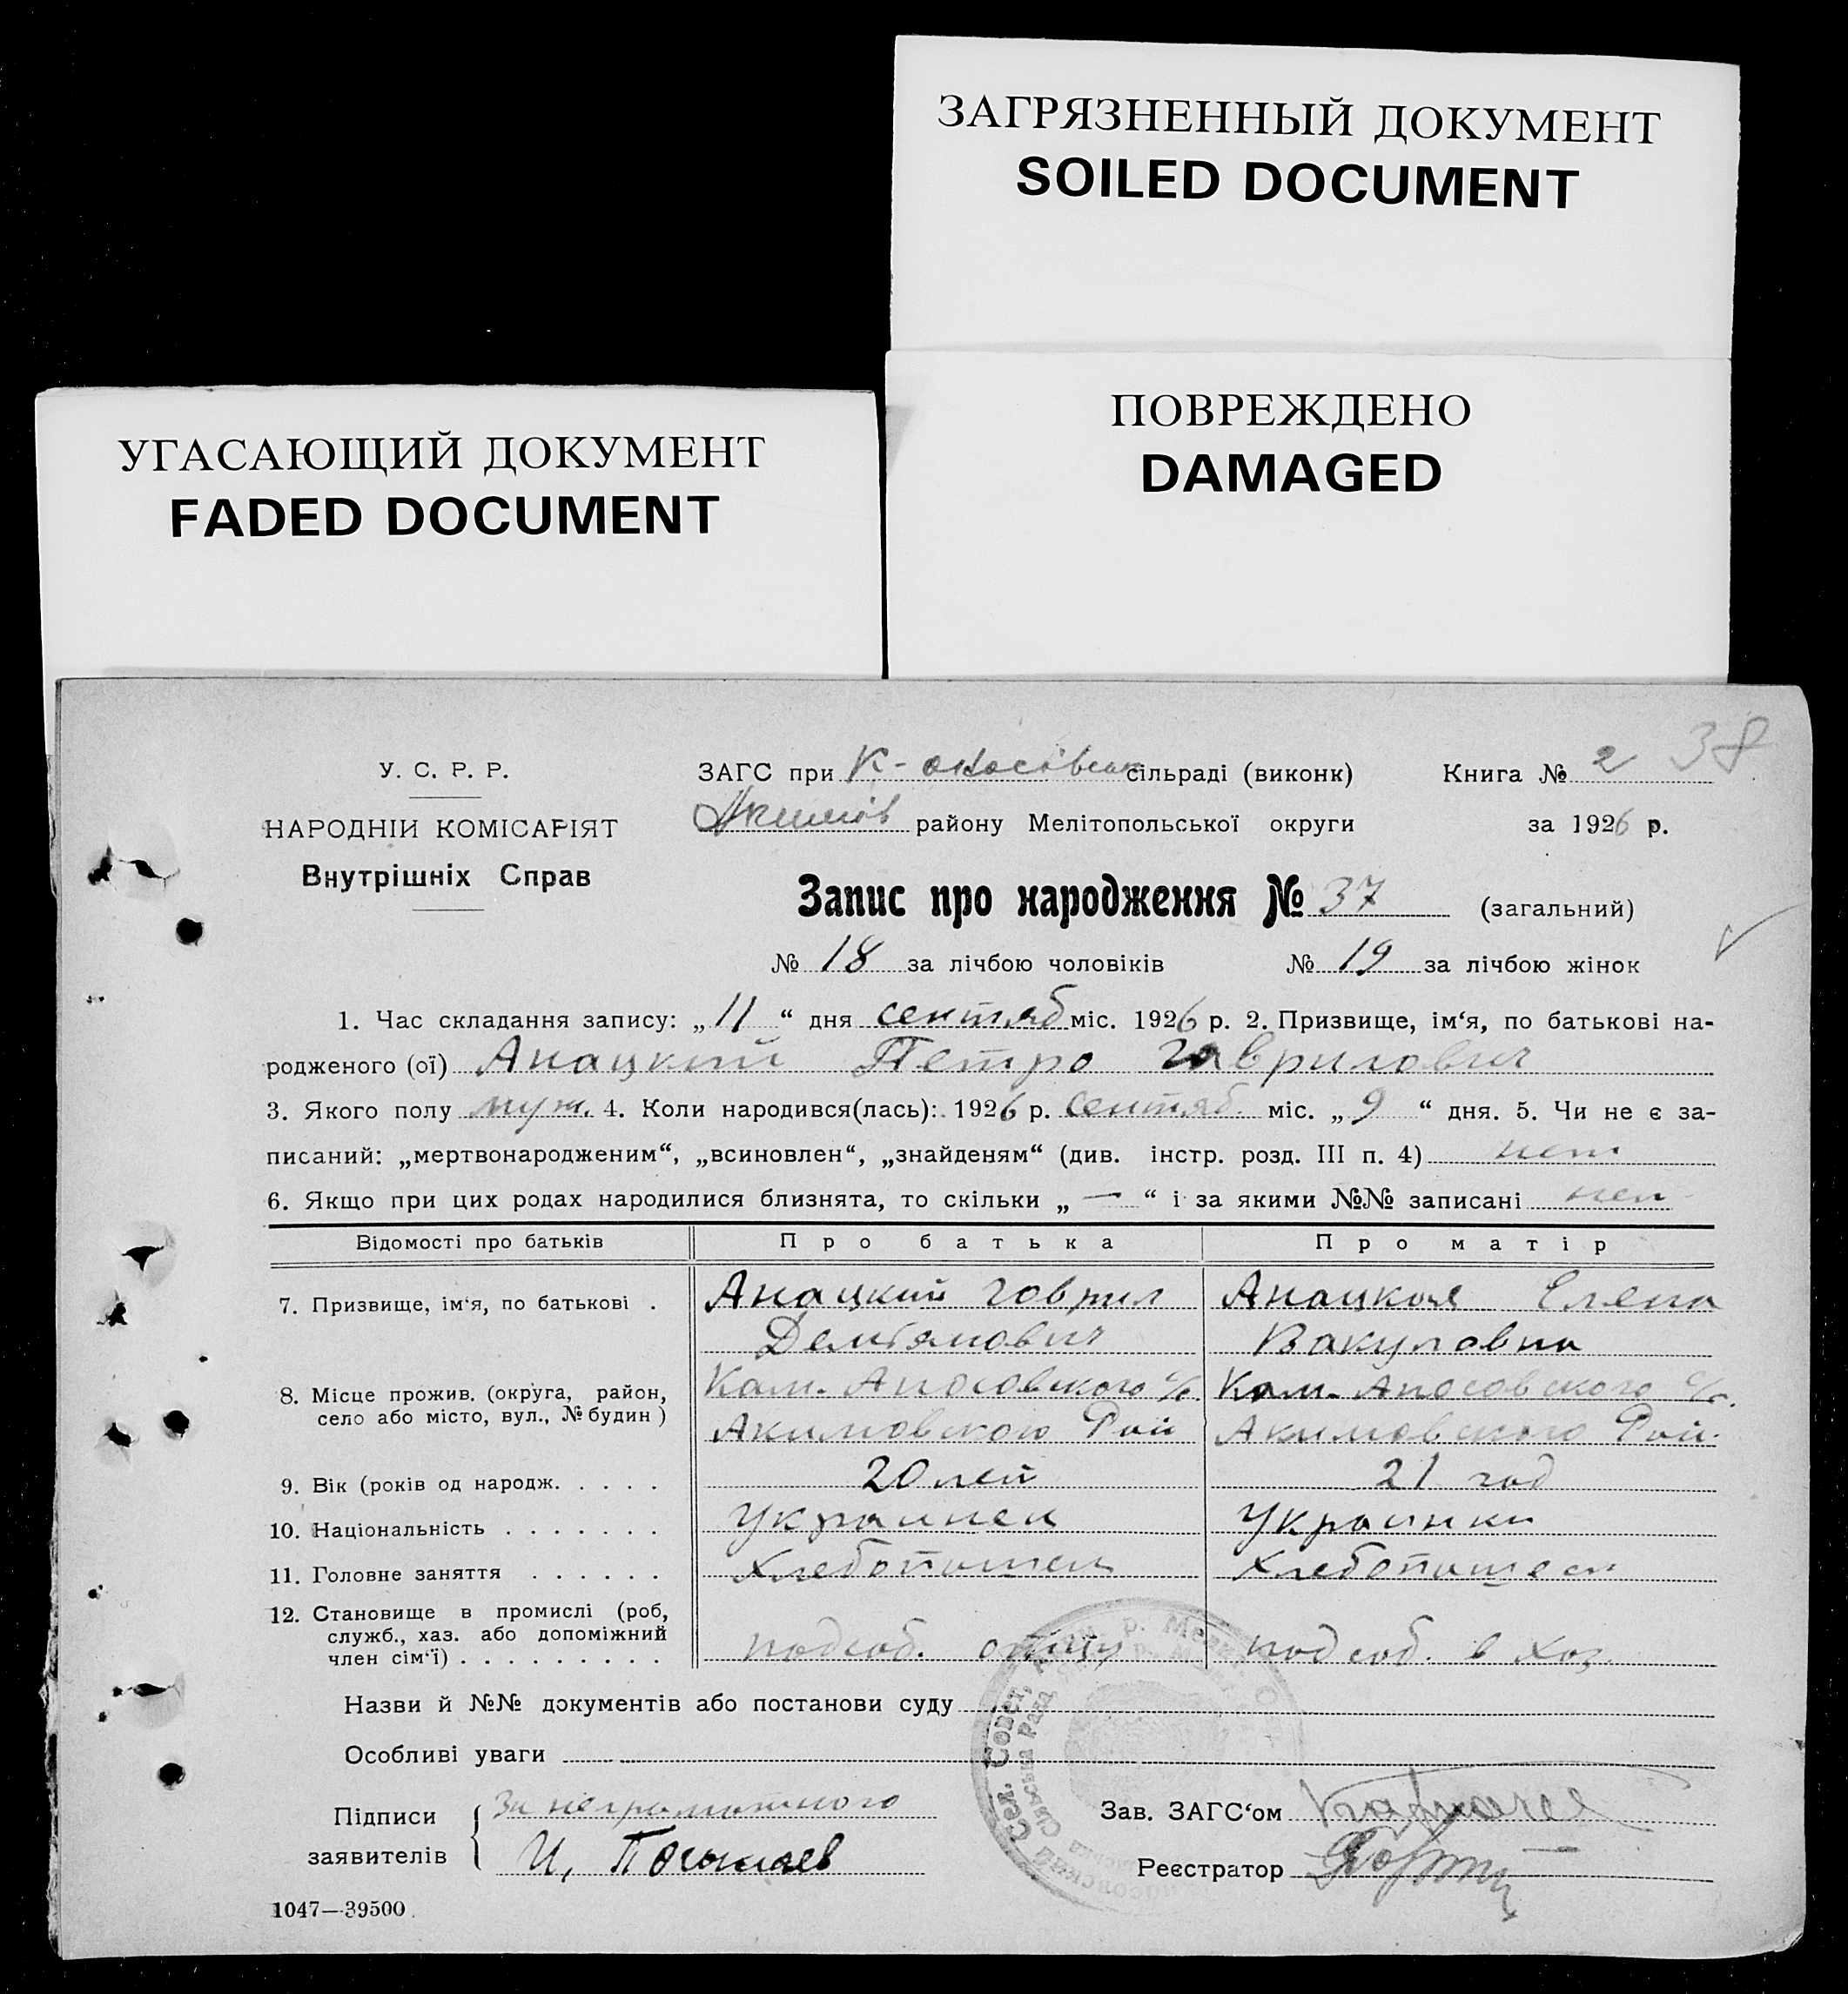 ЗАГРЯЗНЕННЫЙ ДОКУМЕНТ
SOILED DOCUMENT
ПОВРЕЖДЕНО
DAMAGED
УГАСАЮЩИЙ ДОКУМЕНТ
FADED DOCUMENT
У. С. Р. Р.
НАРОДНІЙ КОМІСАРІЯТ
Внутрішніх Справ
ЗАГС при К- сільраді (виконк) Книга № 2 38
Акимов району Мелітопольської округи за 1926 р.
Запис про народження № 37 (загальний)
№ 18 за лічбою чоловіків № 19 за лічбою жінок
1. Час складання запису: „11“ дня сентяб міс. 1926 р. 2. Призвище, ім‘я, по батькові на-
родженого (ої) Анацкий Петро Гаврилович
3. Якого полу муж. 4. Коли народився(лась): 1926 р. сентяб. міс. „9“ дня. 5. Чи не є за-
писаний: „мертвонародженим“, „всиновлен“, „знайденям“ (див. інстр. розд. III п. 4) нет
6. Якщо при цих родах народилися близнята, то скільки „—“ і за якими №№ записані нет
Відомості про батьків Про батька Про матір
7. Призвище, ім‘я, по батькові . Анацкий Говрил Анацкая Елена
Демьянович Вакуловна
8. Місце прожив. (округа, район, Кам. Апосовского с/с. Кам. Апосовского с/с.
село або місто, вул., № будин)
Акимовского Рай Акимовского Рай.
9. Вік (років од народж. . . . . 20 лет 21 год
10. Національність . . . . . . . Украинец Украинка
11. Головне заняття . . . . . . Хлебопашец Хлебопашец
12. Становище в промислі (роб,
служб., хаз. або допоміжний
член сім‘ї) . . . . . . . . . подсоб. отцу подсоб. в хоз.
Назви й №№ документів або постанови суду
Особливі уваги
Підписи За неграмотного
заявителів И,
Зав. ЗАГС‘ом
Реєстратор
1047—39500
Сел. Совет